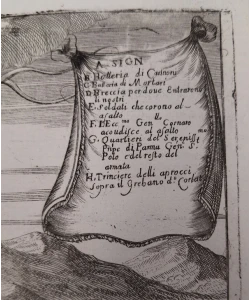 A. SIGN
B Batteria di Cannoni
C Batteria di Mortari
D Breccia per doue Entrateno
li nostri
E. Soldati che corono al
asalto
F. L'Ecc.mo Gen. Cornaro
acoudisce al asalto
G. Quartieri del Sereniss.mo
Pnpe di Parma Gen. S.
Polo e del resto del
armata
H. Trinciere delli aprocci
sopra il Grebano d.o Corlat